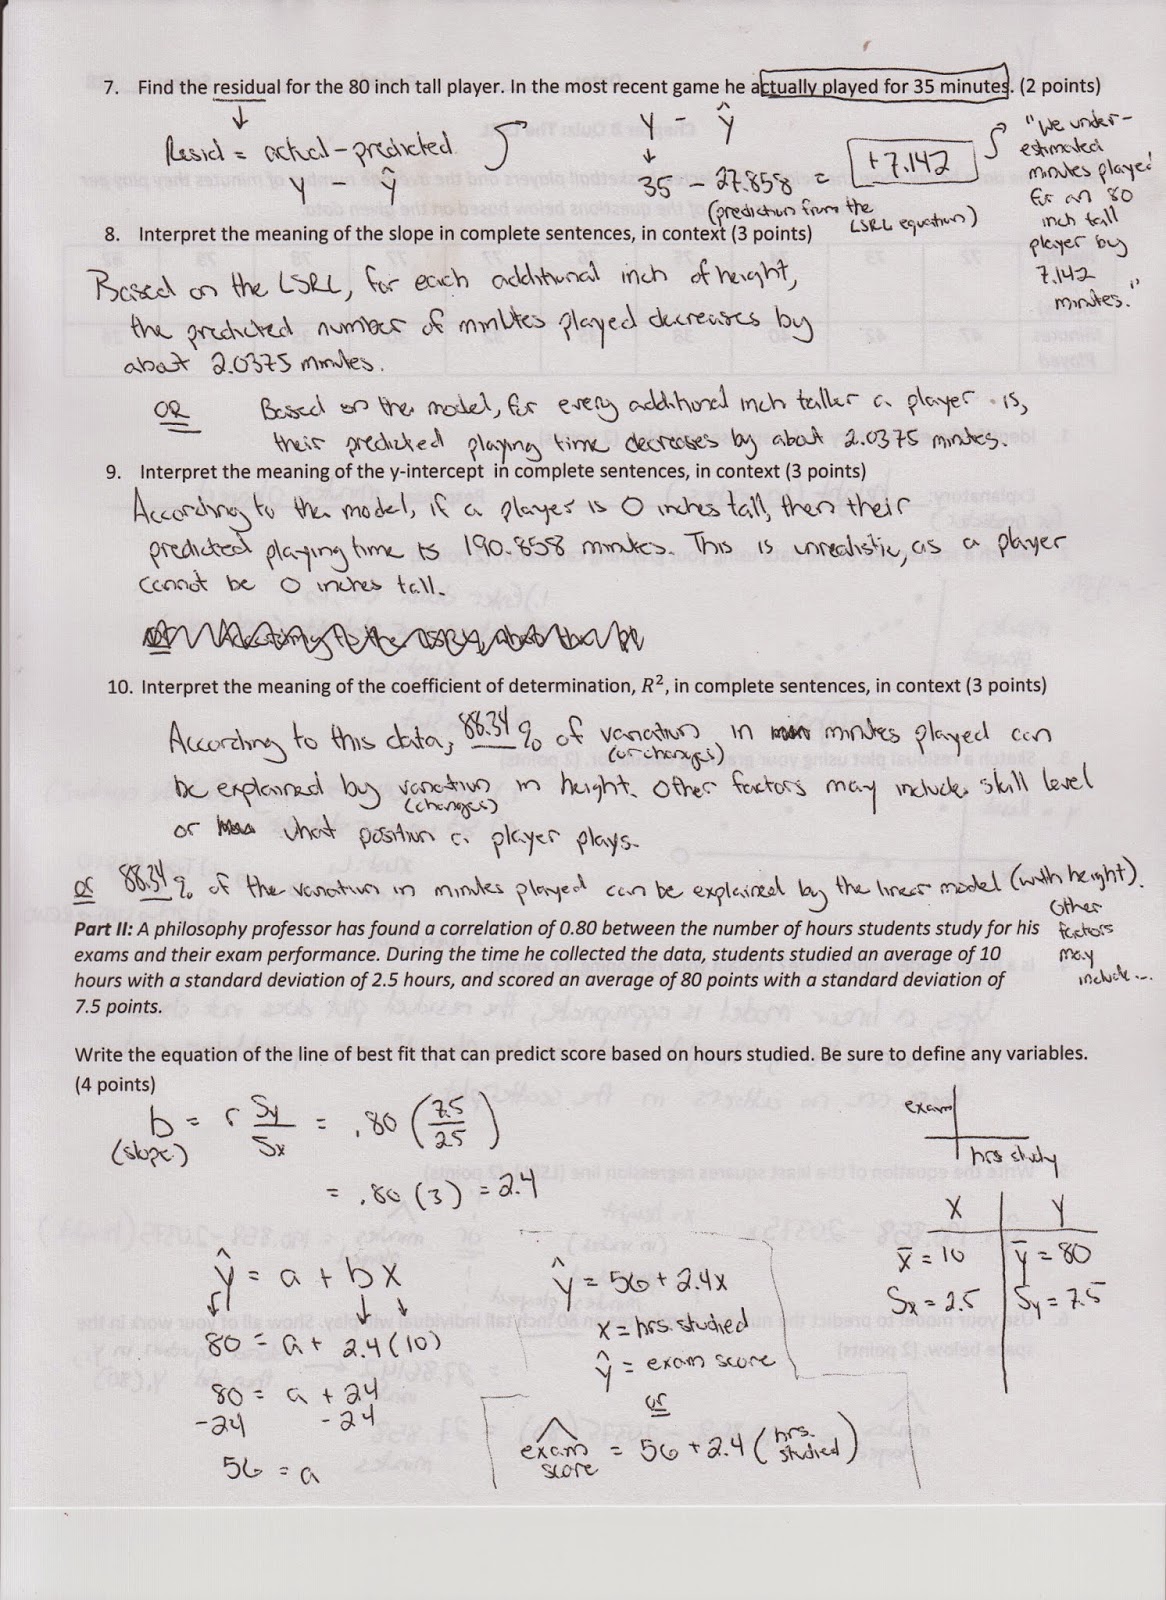 7. Find the residual for the 80 inch tall player. In the most recent game he actually played for 35 minutes. (2 points)
Resid = actual - predicted
y - ŷ
y - ŷ
35 - 27.858 = +7.142
(prediction from the
LSRL equation)
"We under-
estimated
minutes played
for an 80
inch tall
player by
7.142
minutes."
8. Interpret the meaning of the slope in complete sentences, in context (3 points)
Based on the LSRL, for each additional inch of height,
the predicted number of minutes played decreases by
about 2.0375 minutes.
OR Based on the model, for every additional inch taller a player is,
their predicted playing time decreases by about 2.0375 minutes.
9. Interpret the meaning of the y-intercept in complete sentences, in context (3 points)
According to the model, if a player is 0 inches tall, then their
predicted playing time is 190.858 minutes. This is unrealistic, as a player
cannot be 0 inches tall.
10. Interpret the meaning of the coefficient of determination, R², in complete sentences, in context (3 points)
According to this data, 88.34% of variation in minutes played can
(or changes)
be explained by variation in height. Other factors may include skill level
(changes)
or what position a player plays.
or 88.34% of the variation in minutes played can be explained by the linear model (with height).
Other
factors
may
include...
Part II: A philosophy professor has found a correlation of 0.80 between the number of hours students study for his
exams and their exam performance. During the time he collected the data, students studied an average of 10
hours with a standard deviation of 2.5 hours, and scored an average of 80 points with a standard deviation of
7.5 points.
Write the equation of the line of best fit that can predict score based on hours studied. Be sure to define any variables.
(4 points)
b = r Sy/Sx = .80 (7.5/2.5)
(slope)
= .80 (3) = 2.4
exam
hrs study
X Y
x̄ = 10 ȳ = 80
Sx = 2.5 Sy = 7.5
ŷ = a + bx
80 = a + 2.4(10)
80 = a + 24
-24 -24
56 = a
ŷ = 56 + 2.4x
x = hrs. studied
ŷ = exam score
or
exam score = 56 + 2.4 (hrs. studied)